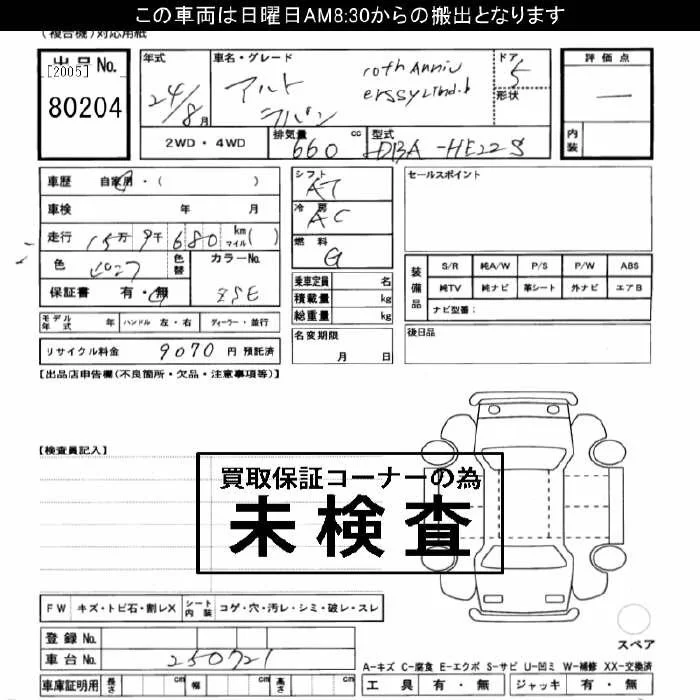 この車両は日曜日AM8:30からの搬出となります
(複合機)対応用紙
出品No.
[2005]
80204
年式
24/8月
車名・グレード
アルト
ラパン
10th Anniv
erssy Ltnd.
ドア
5
形状
2WD・4WD
排気量
660
cc
型式
DBA-HE22S
評価点
—
内装
車歴 自家用・( )
車検 年 月
走行 15万9千680 km マイル( )
色
色替
カラーNo.
ZSE
保証書 有・無
モデル年式 年 ハンドル 左・右 ディーラー・並行
リサイクル料金 9070 円 預託済
シフト
AT
冷房
AC
燃料
G
乗車定員 名
積載量 kg
総重量 kg
名変期限
月 日
セールスポイント
装備品
S/R 純A/W P/S P/W ABS
純TV 純ナビ 革シート 外ナビ エアB
ナビ型番:
後日品
【出品店申告欄(不良箇所・欠品・注意事項等)】
【検査員記入】
買取保証コーナーの為
未検査
FW キズ・トビ石・割レX シート内装 コゲ・穴・汚レ・シミ・破レ・スレ
登録No.
車台No. 250721
車庫証明用 長さ cm 幅 cm 高さ cm
スペア
A-キズ C-腐食 E-エクボ S-サビ U-凹ミ W-補修 XX-交換済
工具 有・無 ジャッキ 有・無